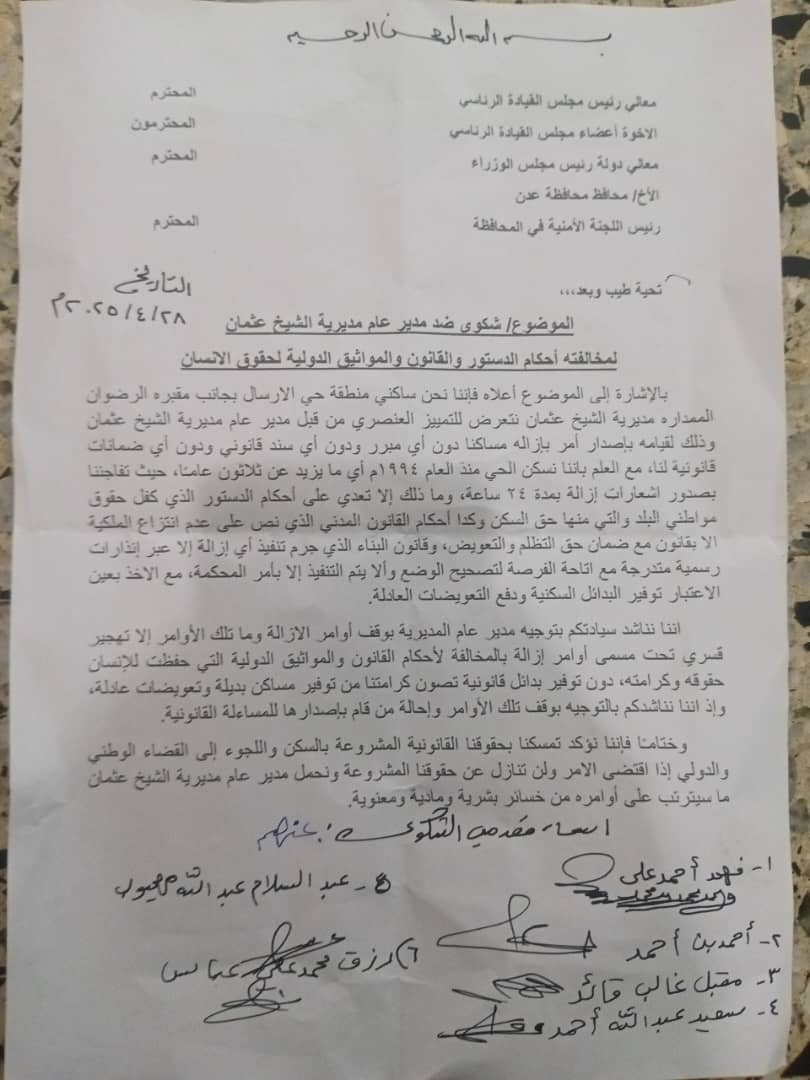 بسم الله الرحمن الرحيم
معالي رئيس مجلس القيادة الرئاسي المحترم
الاخوة أعضاء مجلس القيادة الرئاسي المحترمون
معالي دولة رئيس مجلس الوزراء المحترم
الأخ/ محافظ محافظة عدن
رئيس اللجنة الأمنية في المحافظة المحترم
تحية طيب وبعد،،،
التاريخ
٢٠٢٥/٤/٢٨م
الموضوع/ شكوى ضد مدير عام مديرية الشيخ عثمان
لمخالفته أحكام الدستور والقانون والمواثيق الدولية لحقوق الانسان
بالإشارة إلى الموضوع أعلاه فإننا نحن ساكني منطقة حي الارسال بجانب مقبره الرضوان
الممداره مديرية الشيخ عثمان نتعرض للتمييز العنصري من قبل مدير عام مديرية الشيخ عثمان
وذلك لقيامه بإصدار أمر بإزاله مساكنا دون أي مبرر ودون أي سند قانوني ودون أي ضمانات
قانونية لنا، مع العلم باننا نسكن الحي منذ العام ١٩٩٤م أي ما يزيد عن ثلاثون عاما، حيث تفاجئنا
بصدور اشعارات إزالة بمدة ٢٤ ساعة، وما ذلك إلا تعدي على أحكام الدستور الذي كفل حقوق
مواطني البلد والتي منها حق السكن وكدا أحكام القانون المدني الذي نص على عدم انتزاع الملكية
الا بقانون مع ضمان حق التظلم والتعويض، وقانون البناء الذي جرم تنفيذ أي إزالة إلا عبر إنذارات
رسمية متدرجة مع اتاحة الفرصة لتصحيح الوضع وألا يتم التنفيذ إلا بأمر المحكمة، مع الاخذ بعين
الاعتبار توفير البدائل السكنية ودفع التعويضات العادلة.
اننا نناشد سيادتكم بتوجيه مدير عام المديرية بوقف أوامر الازالة وما تلك الأوامر إلا تهجير
قسري تحت مسمى أوامر إزالة بالمخالفة لأحكام القانون والمواثيق الدولية التي حفظت للإنسان
حقوقه وكرامته، دون توفير بدائل قانونية تصون كرامتنا من توفير مساكن بديلة وتعويضات عادلة،
وإذ اننا نناشدكم بالتوجيه بوقف تلك الأوامر وإحالة من قام بإصدارها للمساءلة القانونية.
وختاما فإننا نؤكد تمسكنا بحقوقنا القانونية المشروعة بالسكن واللجوء إلى القضاء الوطني
والدولي إذا اقتضى الامر ولن نتنازل عن حقوقنا المشروعة ونحمل مدير عام مديرية الشيخ عثمان
ما سيترتب على أوامره من خسائر بشرية ومادية ومعنوية.
اسماء مقدمي الشكوى: عنهم
١- فهد أحمد علي
٢- أحمد بن أحمد
٣- مقبل غالب قائد
٤- سعيد عبدالله أحمد
٥- عبد السلام عبد الله
٦) رزق محمد علي عباس